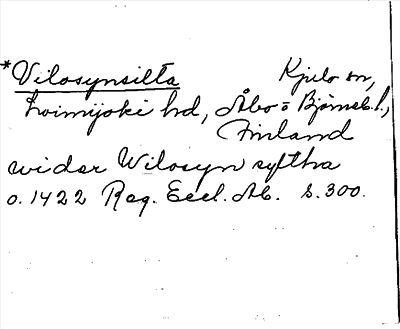 *Vilosynsilta Kjulo sn,
Loimijoki hd, Åbo o Björneb. l.,
Finland
wider Wilosyn syltha
o. 1422 Reg. Eccl. Ab. s. 300.